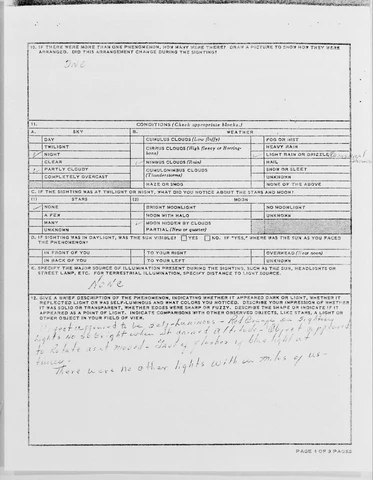 10. IF THERE WERE MORE THAN ONE PHENOMENON, HOW MANY WERE THERE? DRAW A PICTURE TO SHOW HOW THEY WERE
ARRANGED. DID THIS ARRANGEMENT CHANGE DURING THE SIGHTING?
One
11. CONDITIONS (Check appropriate blocks.)
A. SKY B. WEATHER
DAY CUMULUS CLOUDS (Low fluffy) FOG OR MIST
TWILIGHT CIRRUS CLOUDS (High fleecy or Herring-bone) HEAVY RAIN
NIGHT LIGHT RAIN OR DRIZZLE
CLEAR NIMBUS CLOUDS (Rain) HAIL
PARTLY CLOUDY CUMULONIMBUS CLOUDS (Thunderstorms) SNOW OR SLEET
COMPLETELY OVERCAST UNKNOWN
HAZE OR SMOG NONE OF THE ABOVE
C. IF THE SIGHTING WAS AT TWILIGHT OR NIGHT, WHAT DID YOU NOTICE ABOUT THE STARS AND MOON?
(1) STARS (2) MOON
NONE BRIGHT MOONLIGHT NO MOONLIGHT
A FEW MOON WITH HALO UNKNOWN
MANY MOON HIDDEN BY CLOUDS
UNKNOWN PARTIAL (New or quarter)
D. IF SIGHTING WAS IN DAYLIGHT, WAS THE SUN VISIBLE? YES NO. IF "YES," WHERE WAS THE SUN AS YOU FACED
THE PHENOMENON?
IN FRONT OF YOU TO YOUR RIGHT OVERHEAD (Near noon)
IN BACK OF YOU TO YOUR LEFT UNKNOWN
E. SPECIFY THE MAJOR SOURCE OF ILLUMINATION PRESENT DURING THE SIGHTING, SUCH AS THE SUN, HEADLIGHTS OR
STREET LAMP, ETC. FOR TERRESTRIAL ILLUMINATION, SPECIFY DISTANCE TO LIGHT SOURCE.
None
12. GIVE A BRIEF DESCRIPTION OF THE PHENOMENON, INDICATING WHETHER IT APPEARED DARK OR LIGHT, WHETHER IT
REFLECTED LIGHT OR WAS SELF-LUMINOUS AND WHAT COLORS YOU NOTICED. DESCRIBE YOUR IMPRESSION OF WHETHER
IT WAS SOLID OR TRANSPARENT, WHETHER EDGES WERE SHARP OR FUZZY. DESCRIBE THE SHAPE OR INDICATE IF IT
APPEARED AS A POINT OF LIGHT. INDICATE COMPARISONS WITH OTHER OBSERVED OBJECTS, LIKE STARS, A LIGHT OR
OTHER OBJECT IN YOUR FIELD OF VIEW.
Object appeared to be self-luminous - Red Orange
lights Object appeared
to Rotate as it moved - flashes of blue light at
times.
There were no other lights with in miles of us.
PAGE 1 OF 3 PAGES